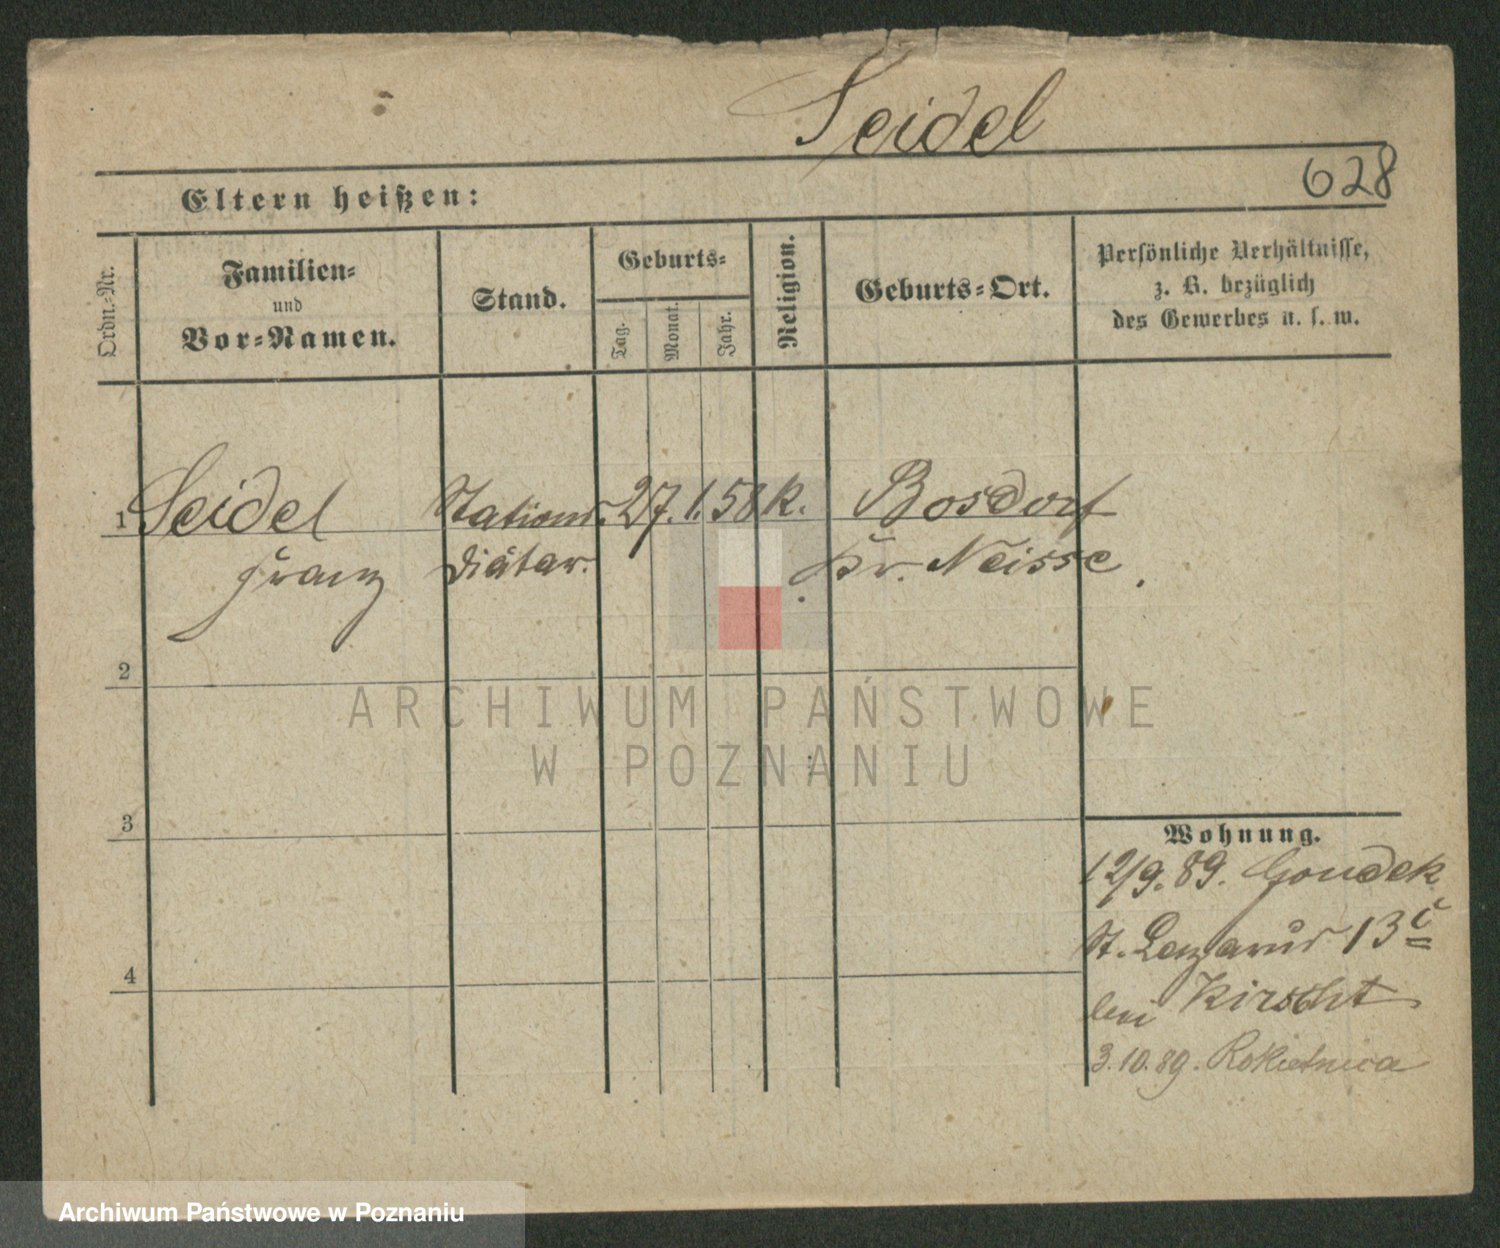 Seidel
628
Eltern heißen:
Ordn.-Nr.
Familien-
und
Vor-Namen.
Stand.
Geburts-
Tag.
Monat.
Jahr.
Religion.
Geburts-Ort.
Persönliche Verhältnisse,
z. B. bezüglich
des Gewerbes u. s. w.
1 Seidel Stations. 27. 1. 58 k. Bosdorf
Franz Diätar. Kr. Neisse.
2
3
4
Wohnung.
12/9. 89.
St. Lazarus 13
bei Kirscht
3.10.89. Rokietnica
ARCHIWUM PAŃSTWOWE
W POZNANIU
Archiwum Państwowe w Poznaniu